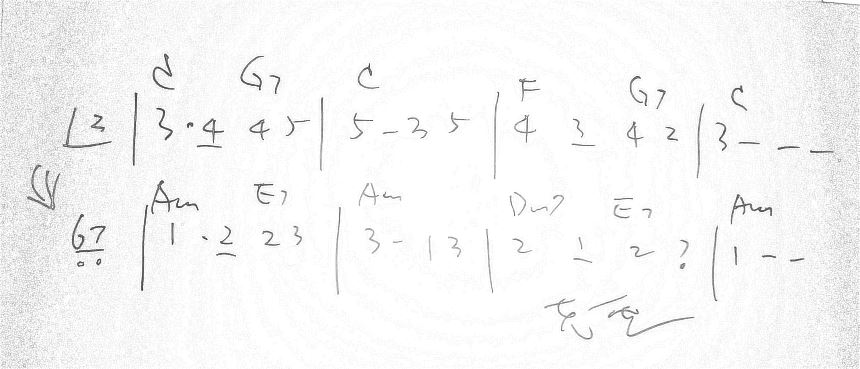 C G7 C F G7 C
12 | 3 · 4 4 5 | 5 - 3 5 | 4 3 4 2 | 3 - - -
Am E7 Am Dm7 E7 Am
67 | 1 · 2 2 3 | 3 - 1 3 | 2 1 2 ? | 1 - -